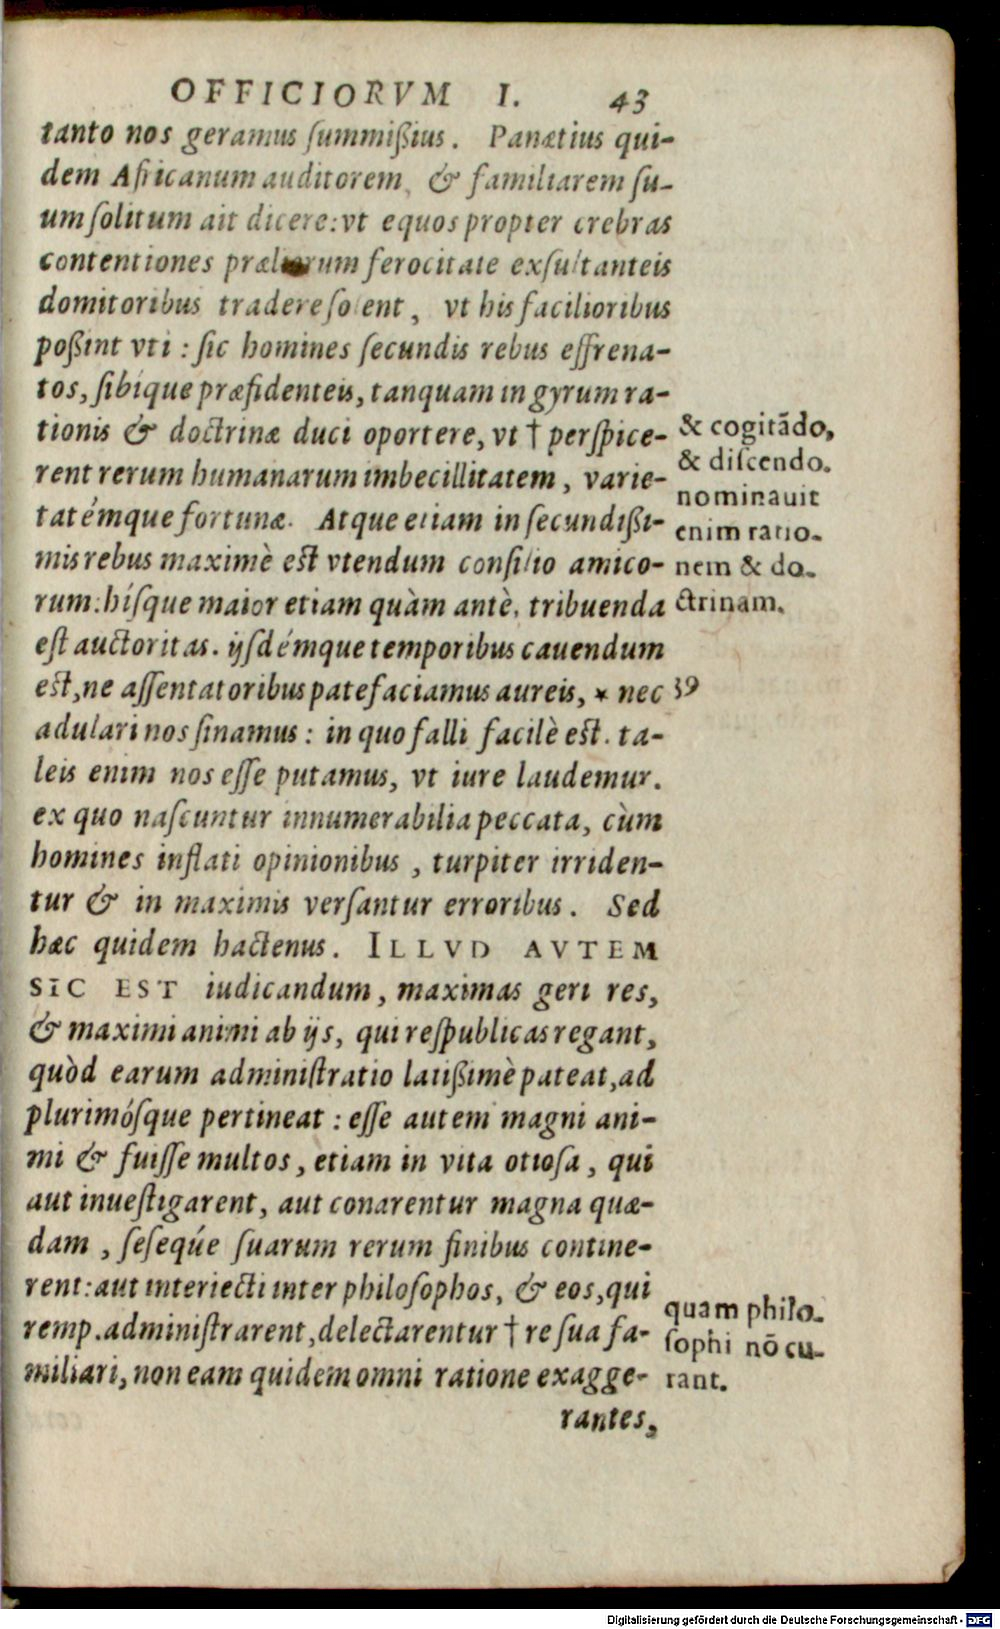 OFFICIORVM I. 43
tanto nos geramus ſummißius. Panætius qui-
dem Africanum auditorem, & familiarem ſu-
um ſolitum ait dicere: vt equos propter crebras
contentiones præliorum ferocitate exſultanteis
domitoribus tradere ſolent, vt his facilioribus
poßint vti: ſic homines ſecundis rebus effrena-
tos, ſibíque præfidenteis, tanquam in gyrum ra-
tionis & doctrinæ duci oportere, vt † perſpice-
rent rerum humanarum imbecillitatem, varie-
tatémque fortunæ. Atque etiam in ſecundißi-
mis rebus maximè est vtendum conſilio amico-
rum: híſque maior etiam quàm antè, tribuenda
eſt auctoritas. ijſdémque temporibus cauendum
est, ne aſſentatoribus patefaciamus aureis, * nec
adulari nos ſinamus: in quo falli facilè est. ta-
leis enim nos eſſe putamus, vt iure laudemur.
ex quo naſcuntur innumerabilia peccata, cùm
homines inflati opinionibus, turpiter irriden-
tur & in maximis verſantur erroribus. Sed
hæc quidem hactenus. ILLVD AVTEM
SIC EST iudicandum, maximas geri res,
& maximi animi ab ijs, qui reſpublicas regant,
quòd earum adminiſtratio latißimè pateat, ad
plurimóſque pertineat: eſſe autem magni ani-
mi & fuiſſe multos, etiam in vita otioſa, qui
aut inueſtigarent, aut conarentur magna quæ-
dam, ſeſeqúe ſuarum rerum finibus contine-
rent: aut interiecti inter philoſophos, & eos, qui
remp. adminiſtrarent, delectarentur † re ſua fa-
miliari, non eam quidem omni ratione exagge-
rantes,
& cogitādo,
& diſcendo.
nominauit
enim ratio-
nem & do-
ctrinam.
39
quam philo-
ſophi nō cu-
rant.
Digitalisierung gefördert durch die Deutsche Forschungsgemeinschaft - DFG